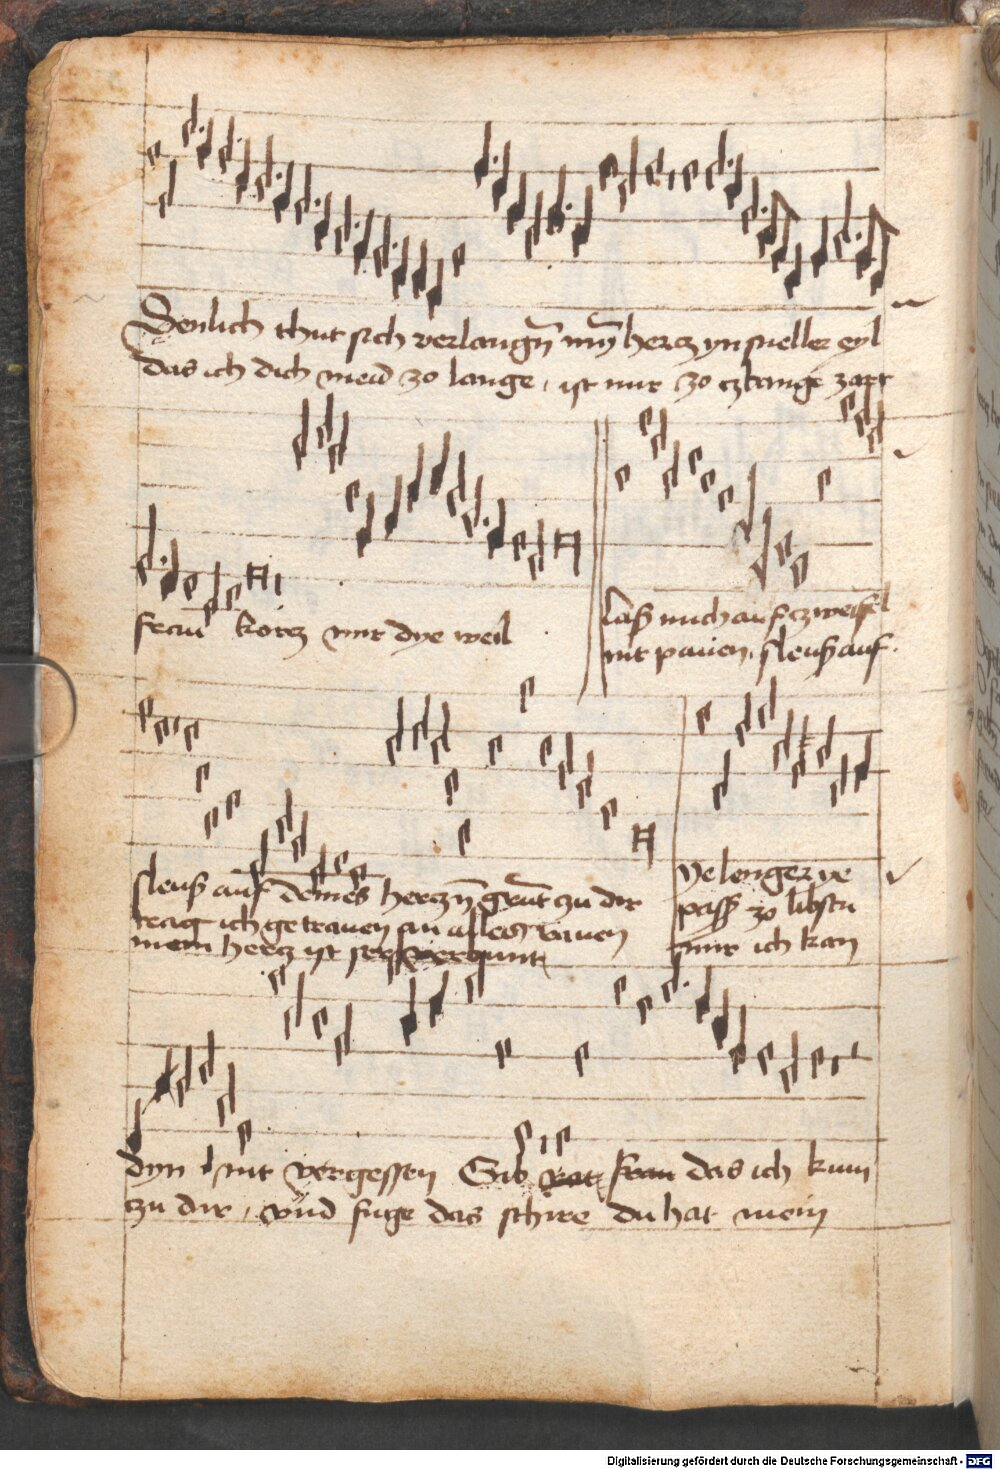 Senlich thut sich verlangn̄ mȳ hercz yn sneller eyl
das ich dich meid zo lange, ist mir zo czbange zart
frau korcz mir dye weil
Laß mich auß zweifl
nit pauen, sleuß auf
sleuß auf deines herczn̄ grūt zu dir
trag ich getrauen an alles rauen
mein hercz ist ser
Ye lenger ye
paß zo libstu
mir ich kan
dyn nit vergessen Gib rat frau das ich kum
zu dir, vnd fuge das schire du hat mein
Digitalisierung gefördert durch die Deutsche Forschungsgemeinschaft - DFG